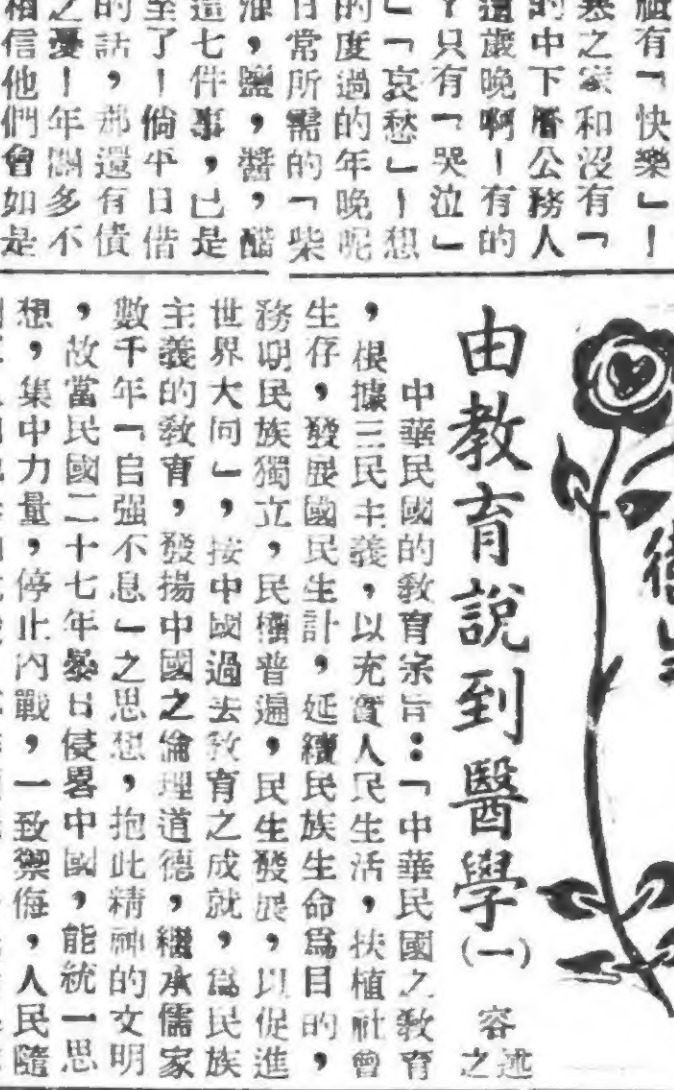 有「快樂」！
寒之家和沒有「
的中下層公務人
這歲晚啊！有的
？只有「哭泣」
」「哀愁」！想
的度過的年晚呢
日常所需的「柴
油，鹽，醬，醋
這七件事，已是
至了！倘平日借
的話，那還有債
之憂！年關多不
相信他們會如是
由教育說到醫學(一) 容之述
中華民國的教育宗旨：「中華民國之教育
，根據三民主義，以充實人民生活，扶植社會
生存，發展國民生計，延續民族生命爲目的，
務期民族獨立，民權普遍，民生發展，以促進
世界大同」，按中國過去教育之成就，爲民族
主義的教育，發揚中國之倫理道德，繼承儒家
數千年「自强不息」之思想，抱此精神的文明
，故當民國二十七年暴日侵畧中國，能統一思
想，集中力量，停止內戰，一致禦侮，人民隨